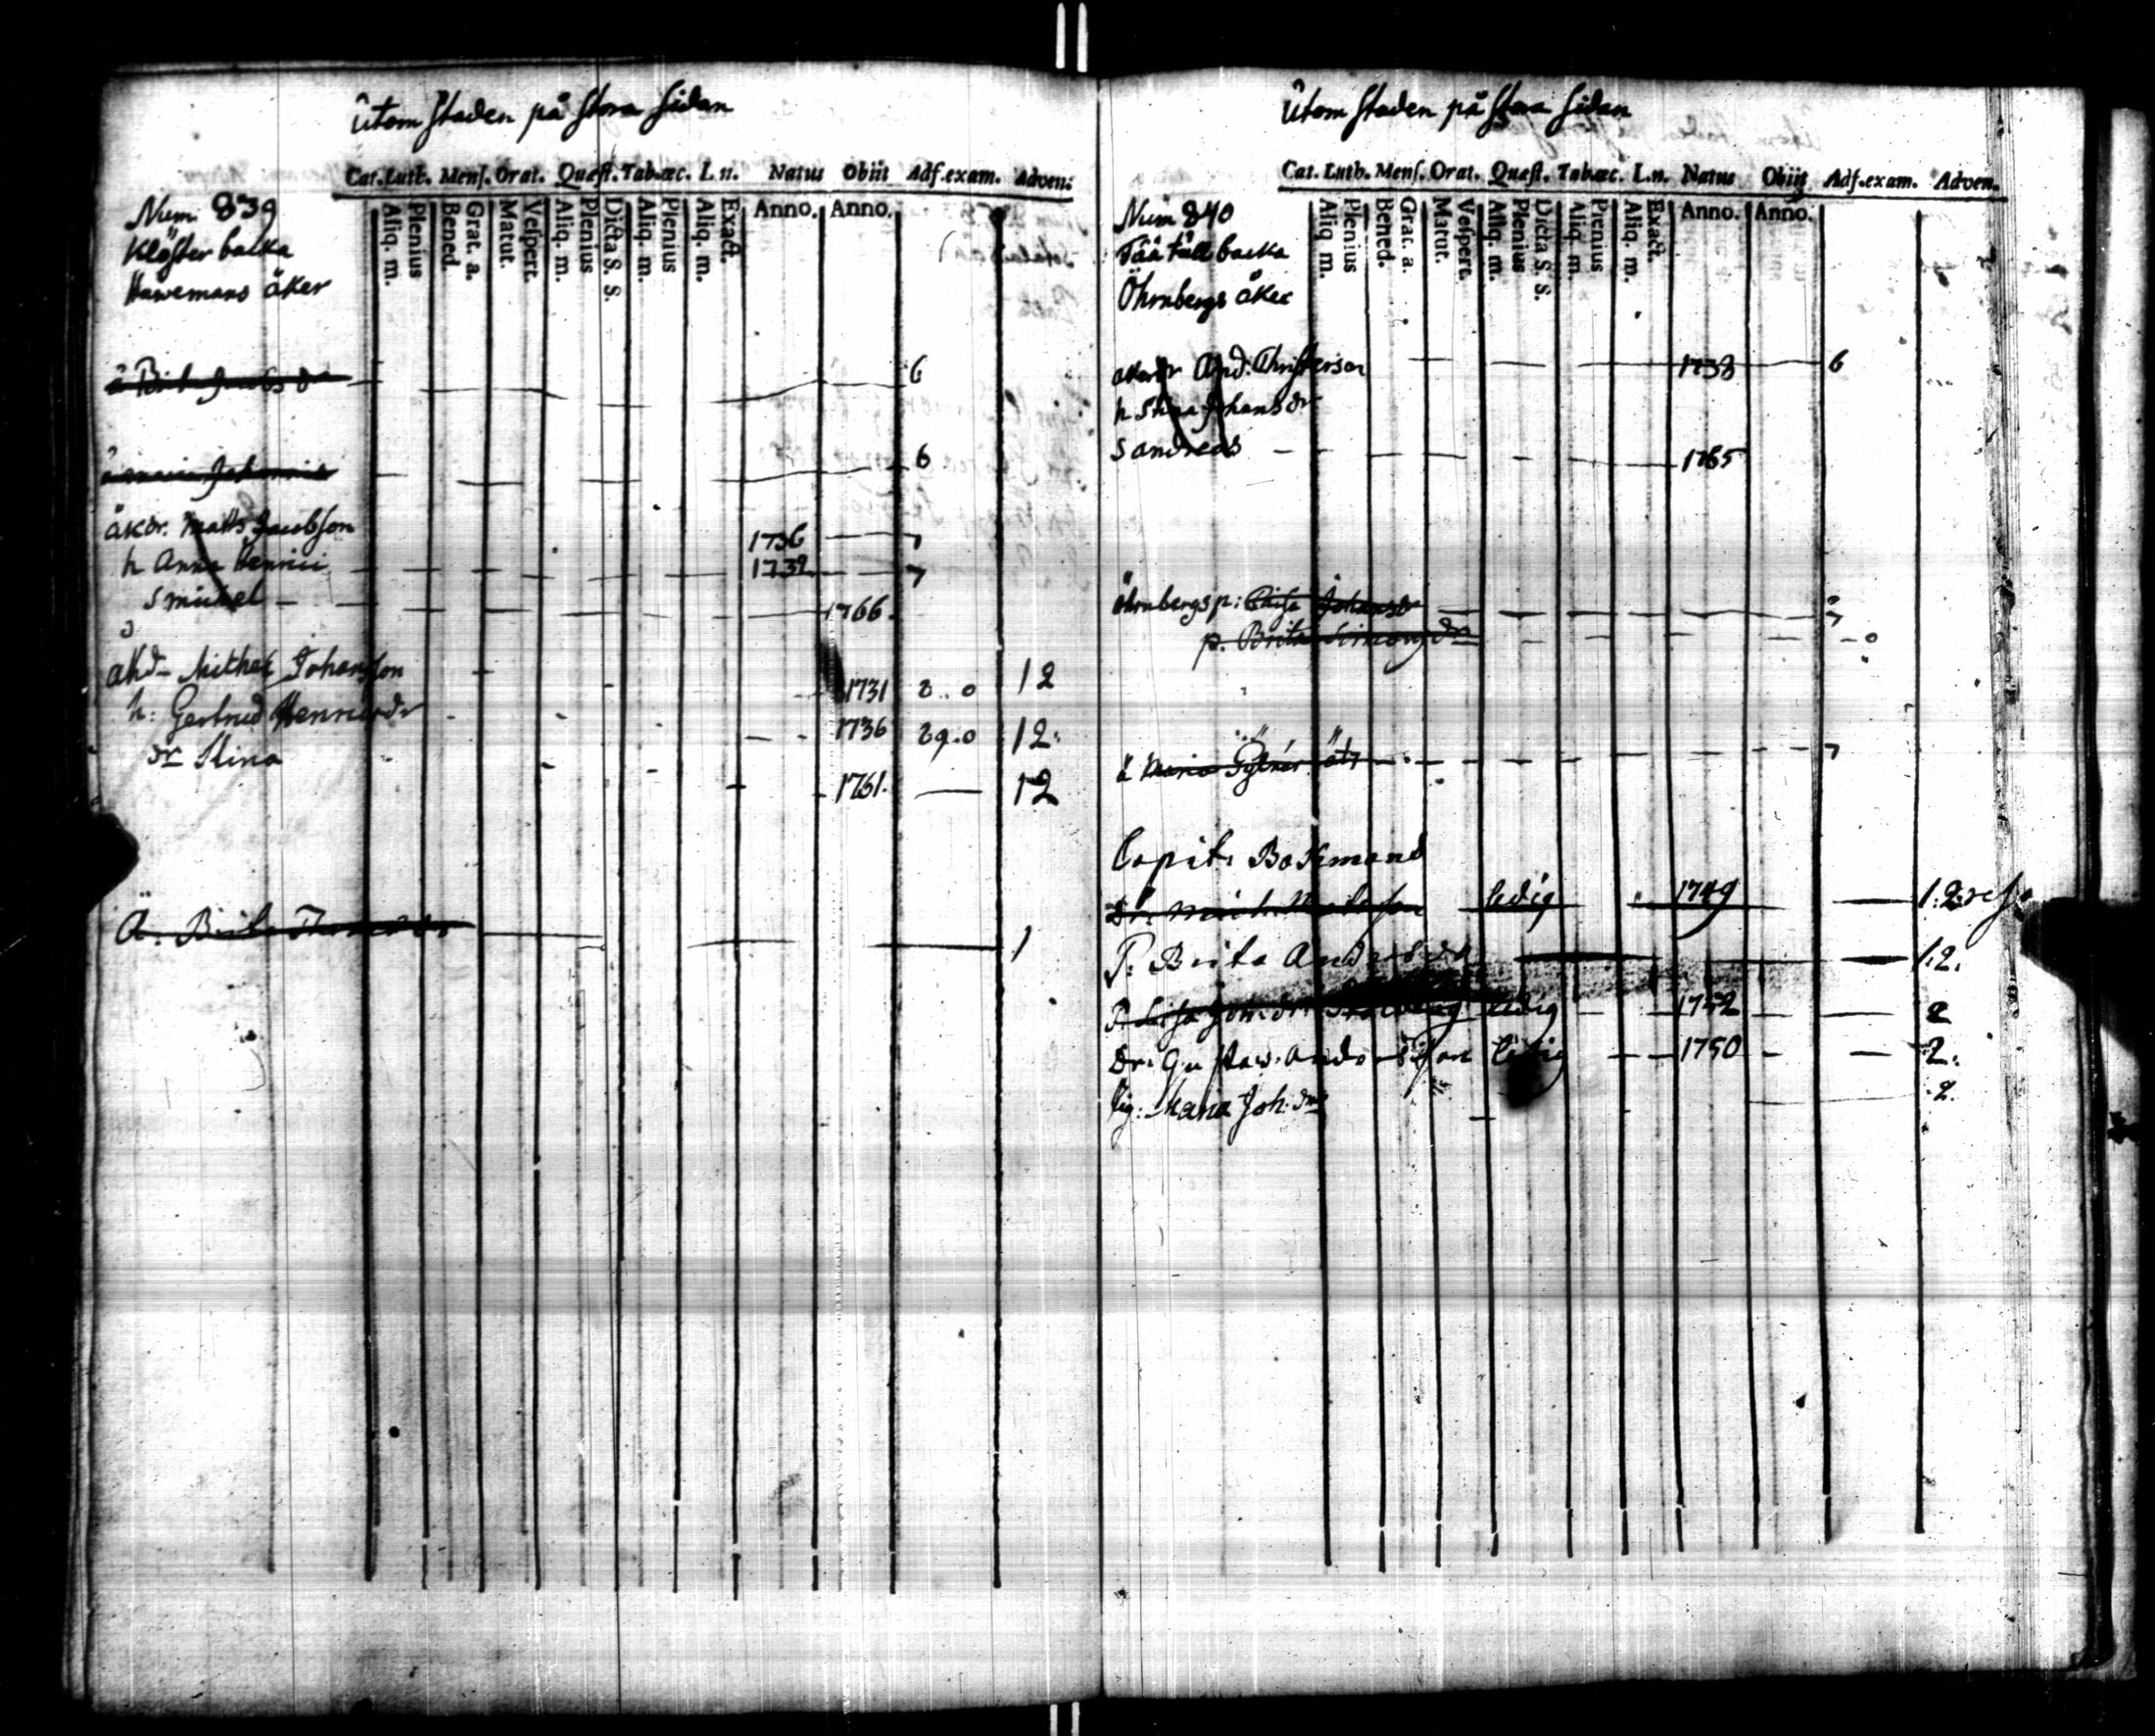 Utom staden på stora sidan
Cat. Luth. Mens. Orat. Quæst. Tab. œc. L. n. Natus Obiit Adf. exam. Adven.
Aliq. m. Plenius Bened. Grat. a. Matut. Vespert. Aliq. m. Plenius Dicta S. S. Aliq. m. Plenius Aliq. m. Exact. Anno. Anno.
Num 839
Klöster backa
Hawemans åker
6
6
åkdr. Matts Jacobson 1736 7
h Anna Henrici 1732 7
S Michel 1766.
åkd Michel Johansson 1731 12
h: Gertrud 1736 12.
dr Stina 1761. 12
Ä. Brita 1
Utom staden på stora sidan
Cat. Luth. Mens. Orat. Quæst. Tab. œc. L. n. Natus Obiit Adf. exam. Adven.
Aliq. m. Plenius Bened. Grat. a. Matut. Vespert. Aliq. m. Plenius Dicta S. S. Aliq. m. Plenius Aliq. m. Exact. Anno. Anno.
Num 840
backa
Öhrnbergs åker
And. Christerson 1738 6
h Stina Johans dr
S Andreas 1765
Öhrnbergs p: Johansdr 7
p. Brita Simons dr
ä Maria 7
Capit. Bokmans
Dr. Mich. ledig 1749 1.2.
P. Brita Anders dr 1.2.
P. Lisa ledig 2
Dr. Gustaw. Anders son ledig 1750 2.
Maria Joh. dr 2.